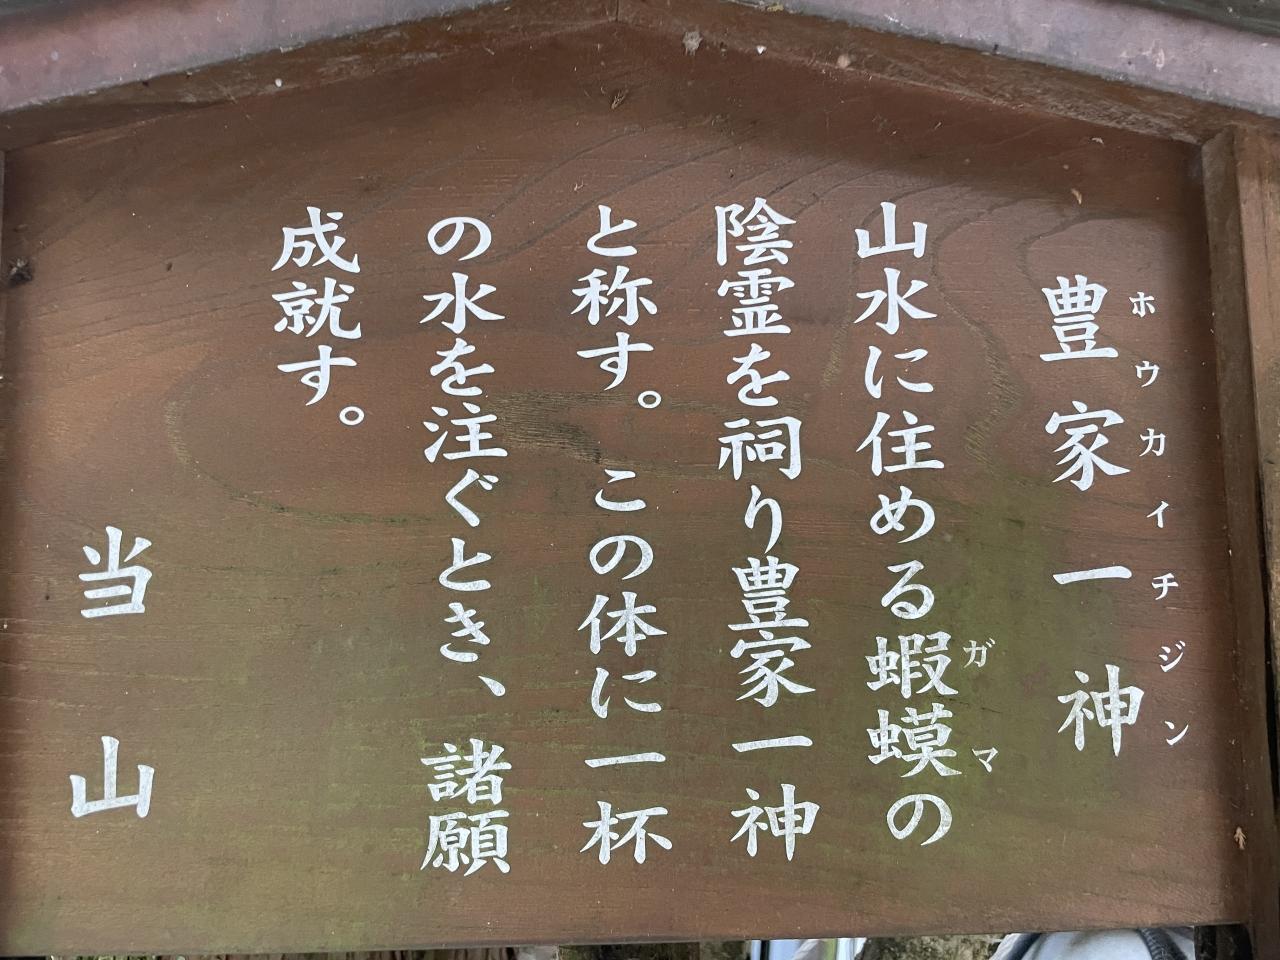 豊家一神
ホウカイチジン
山水に住める蝦蟆の
ガマ
陰霊を祠り豊家一神
と称す。この体に一杯
の水を注ぐとき、諸願
成就す。
当山